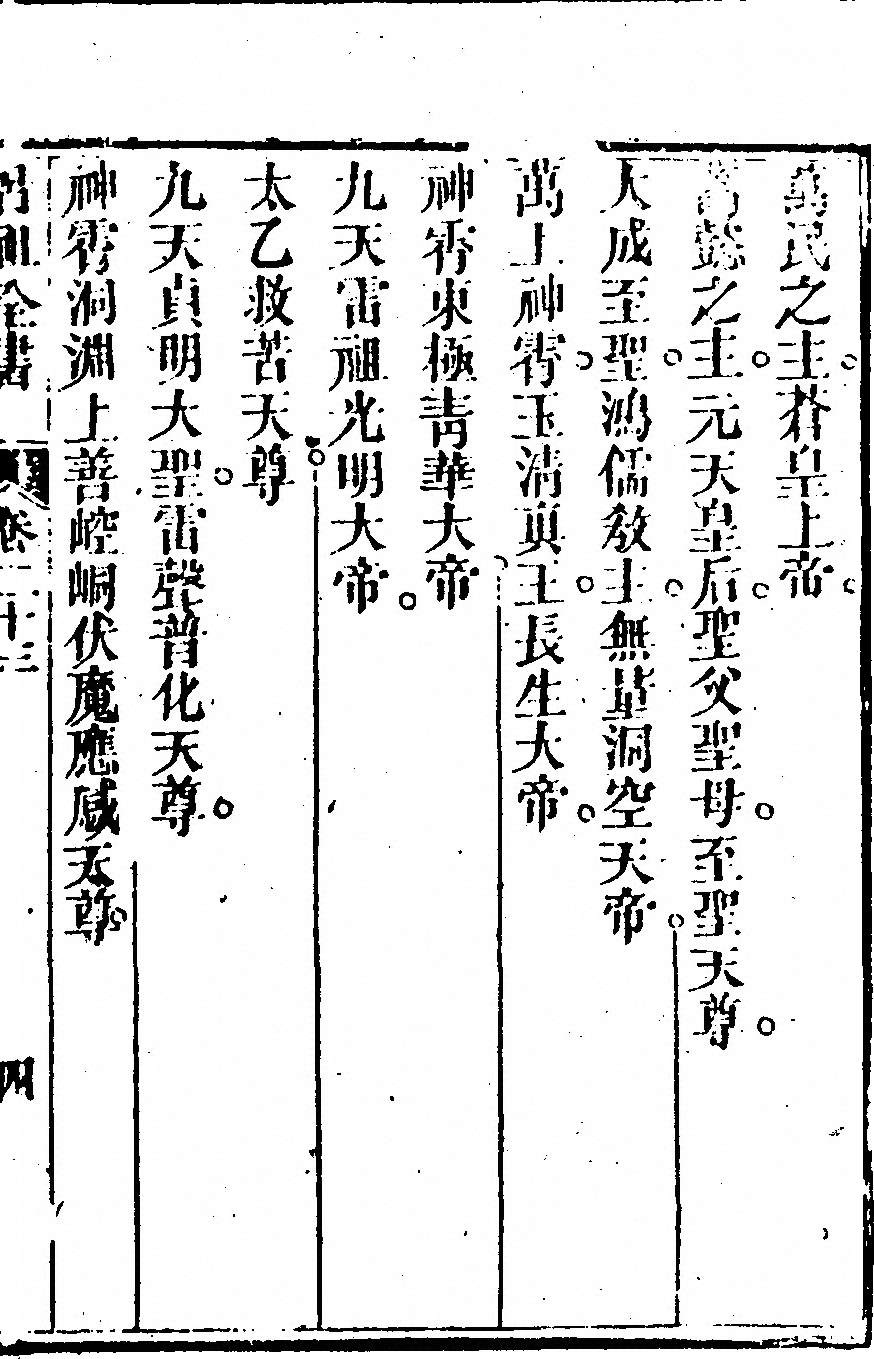 萬民之主。蒼皇上帝。
萬懿之主。元天皇后。聖父聖母。至聖天尊。
大成至聖。鴻儒教主。無量洞空天帝。
萬上神霄。玉清真王。長生大帝。
神霄東極青華大帝
九天雷祖光明大帝。
太乙救苦天尊
九天貞明大聖。雷聲普化天尊。
神霄洞淵上善崆峒伏魔應感天尊。
呂祖全書 卷二十三 四